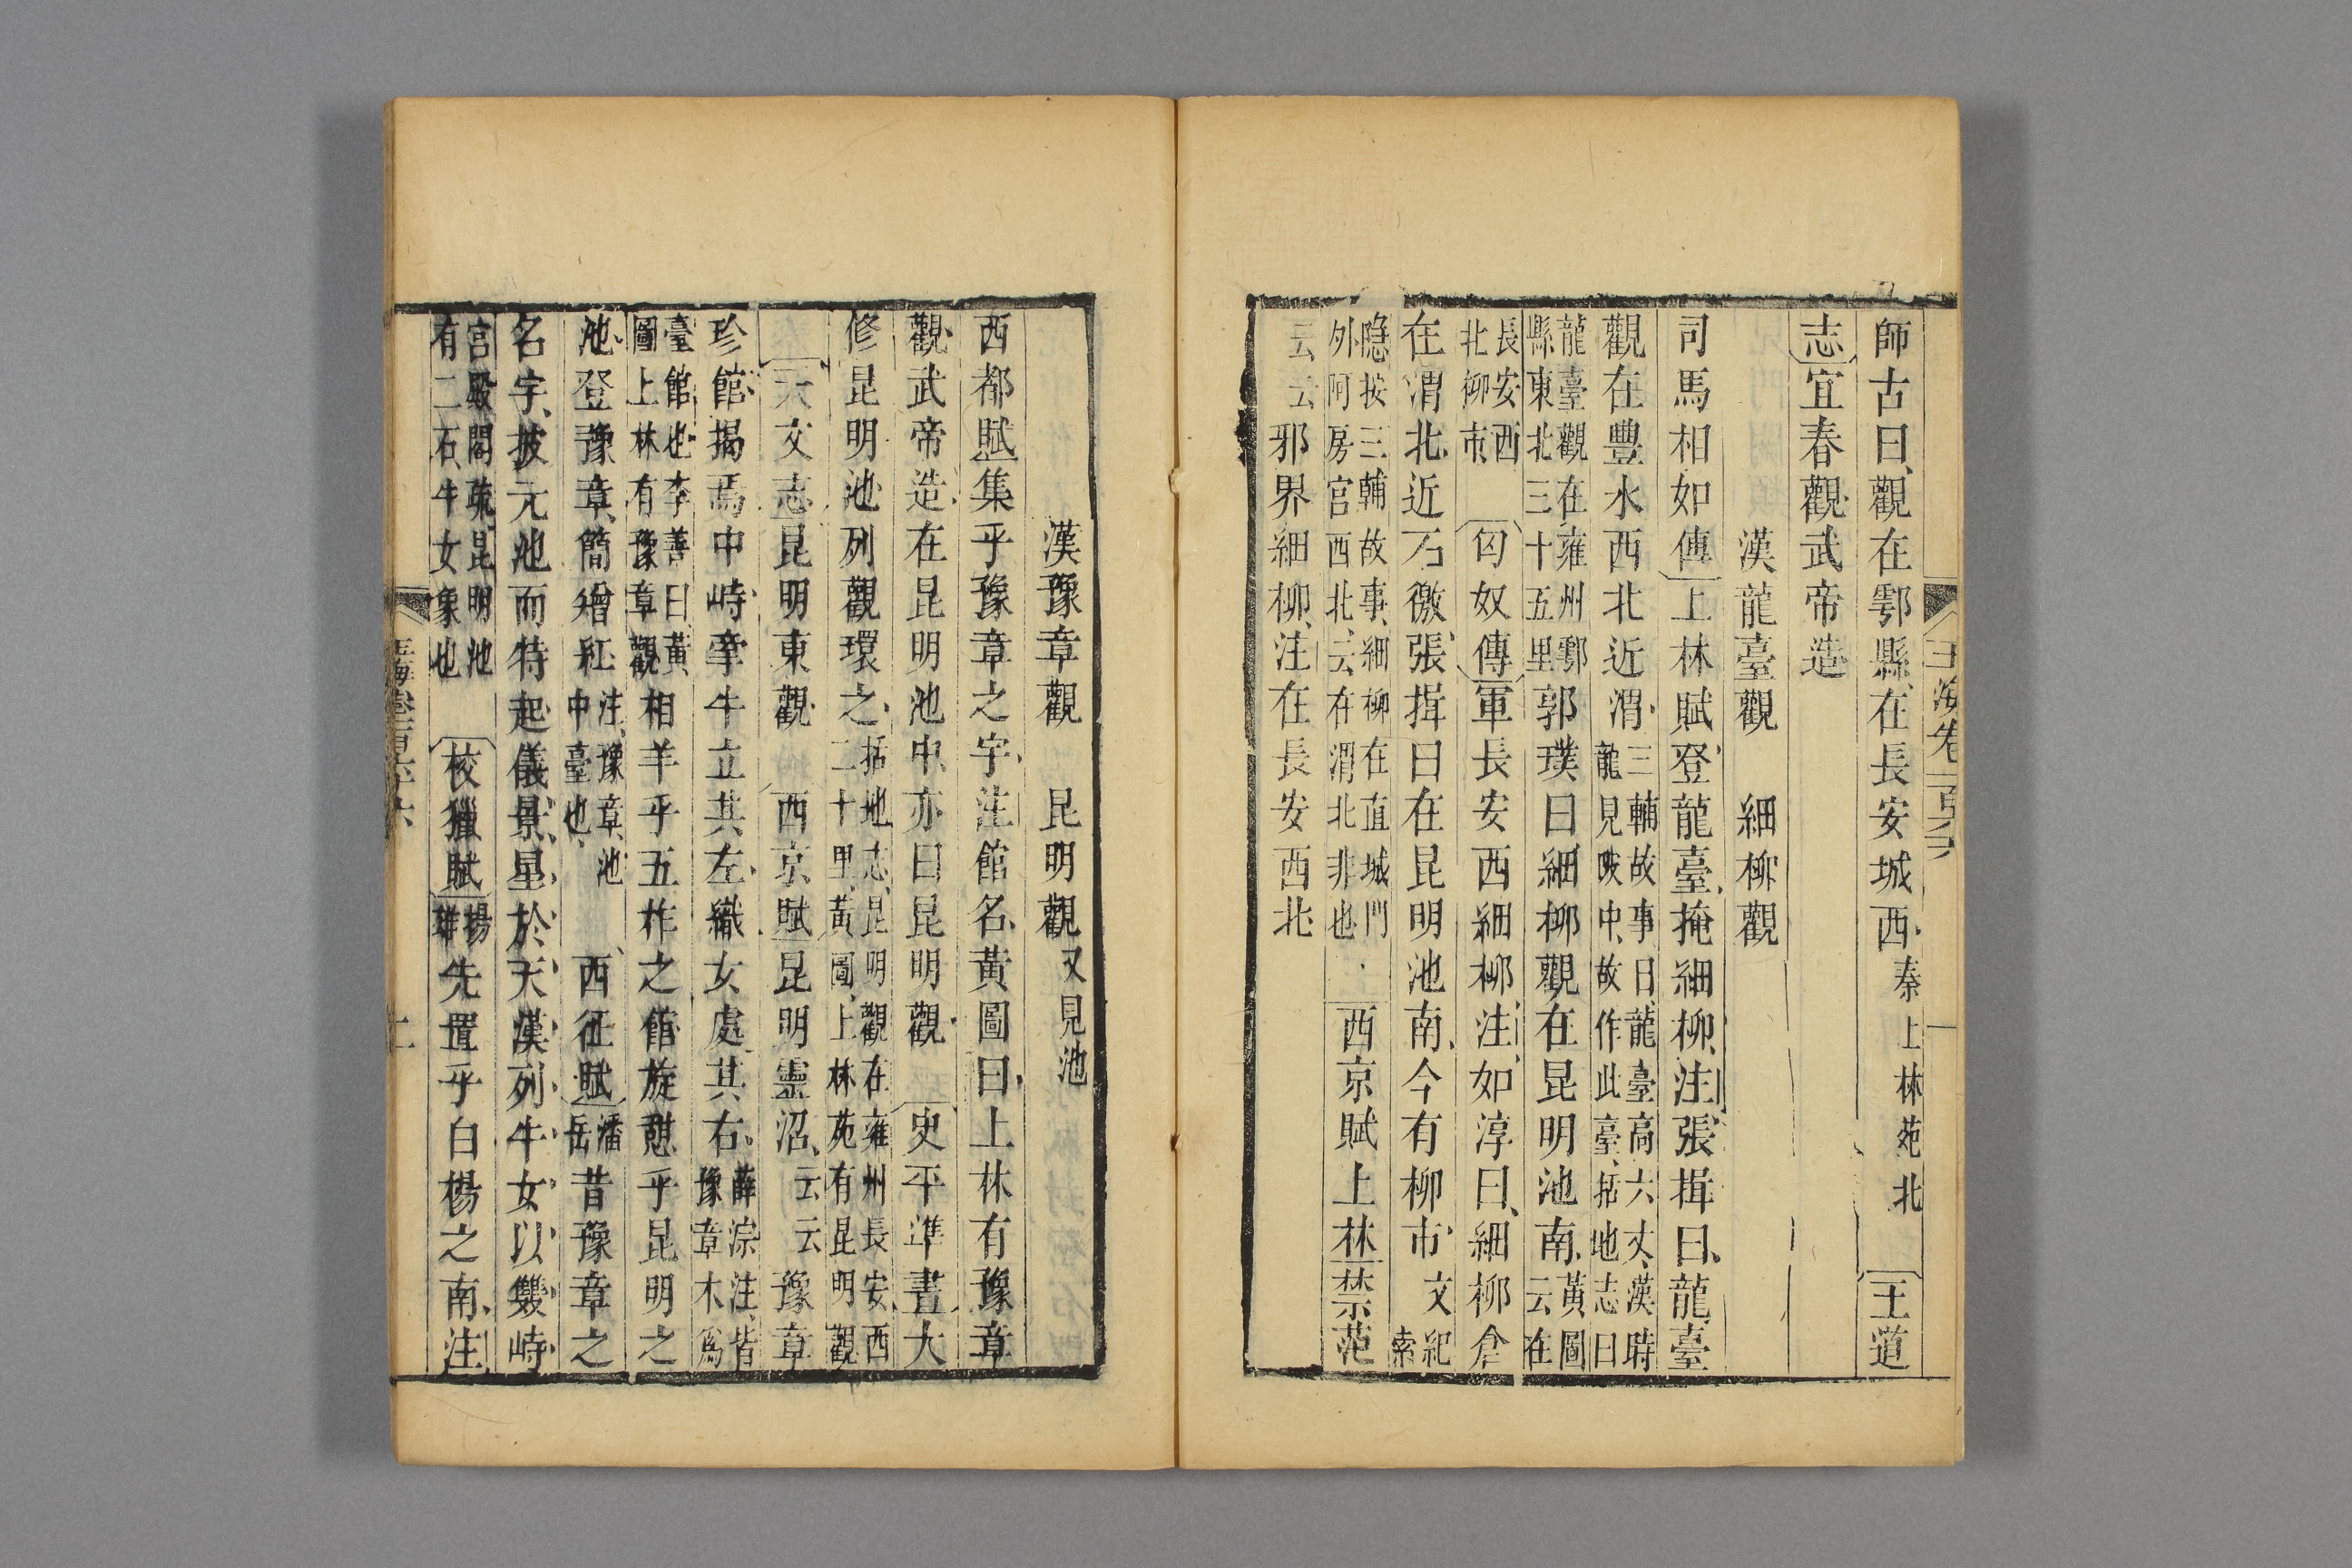 師古曰觀在鄠縣在長安城西秦上林苑北王道
志宜春觀武帝造
漢龍臺觀　細柳觀
司馬相如傳上林賦登龍臺掩細柳注張揖曰龍臺
觀在豐水西北近渭三輔故事曰龍臺高六丈漢時龍見陂中故作此臺括地志曰
龍臺觀在雍州鄠縣東北三十五里郭璞曰細柳觀在昆明池南黃圖云在
長安西北柳市　匈奴傳軍長安西細柳注如淳曰細柳倉
在渭北近石徼張揖曰在昆明池南今有柳市文紀索
隱按三輔故事細柳在直城門外阿房宮西北云在渭北非也　西京賦上林禁苑
云云邪界細柳注在長安西北
漢豫章觀　昆明觀又見池
西都賦集乎豫章之宇注館名黃圖曰上林有豫章
觀武帝造在昆明池中亦曰昆明觀　史平準書大
修昆明池列觀環之括地志昆明觀在雍州長安西二十里黃圖上林苑有昆明觀
天文志昆明東觀　西京賦昆明靈沼云云豫章
珍館揭焉中峙牽牛立其左織女處其右薛淙注皆豫章木爲
臺館也李善曰黃圖上林有豫章觀相羊乎五柞之館旋憇乎昆明之
池登豫章簡矰紅注豫章池中臺也　西征賦潘岳昔豫章之
名宇披元池而特起儀景星於天漢列牛女以雙峙
宮殿閣疏昆明池有二石牛女象也　校獵賦揚雄先置乎白楊之南注
玉海卷一百六十六